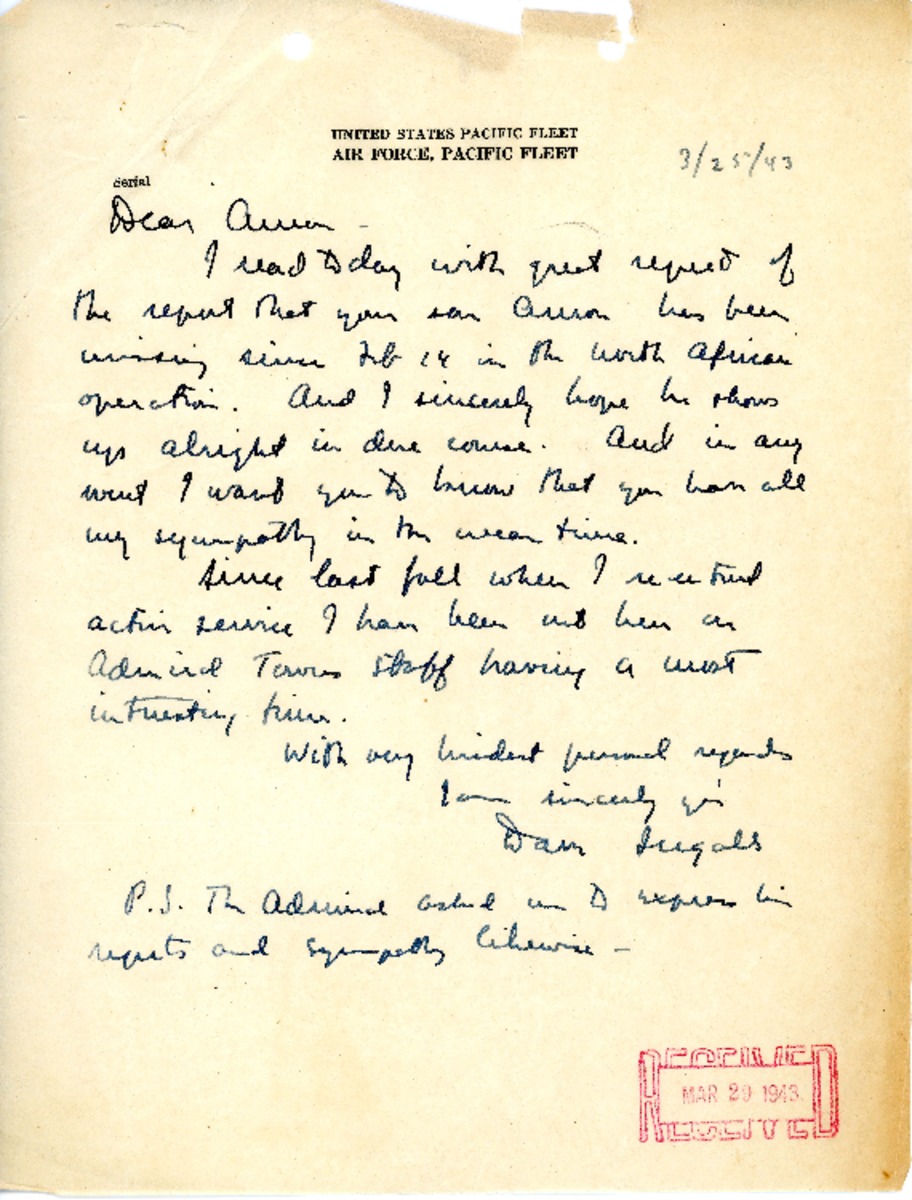 UNITED STATES PACIFIC FLEET
AIR FORCE, PACIFIC FLEET
3/25/43
Serial
Dear Amon –
I read today with great regret of
the report that your son Amon has been
missing since Feb 14 in the North African
operation. And I sincerely hope he shows
up alright in due course. And in any
event I want you to know that you have all
my sympathy in the mean time.
Since last fall when I reentered
active service I have been out here on
Admiral Towers staff having a most
interesting time.
With very kindest personal regards
I am sincerely yrs
Dave Ingalls
P.S. The Admiral asked me to express his
regrets and sympathy likewise –
RECEIVED
MAR 29 1943
RECEIVED